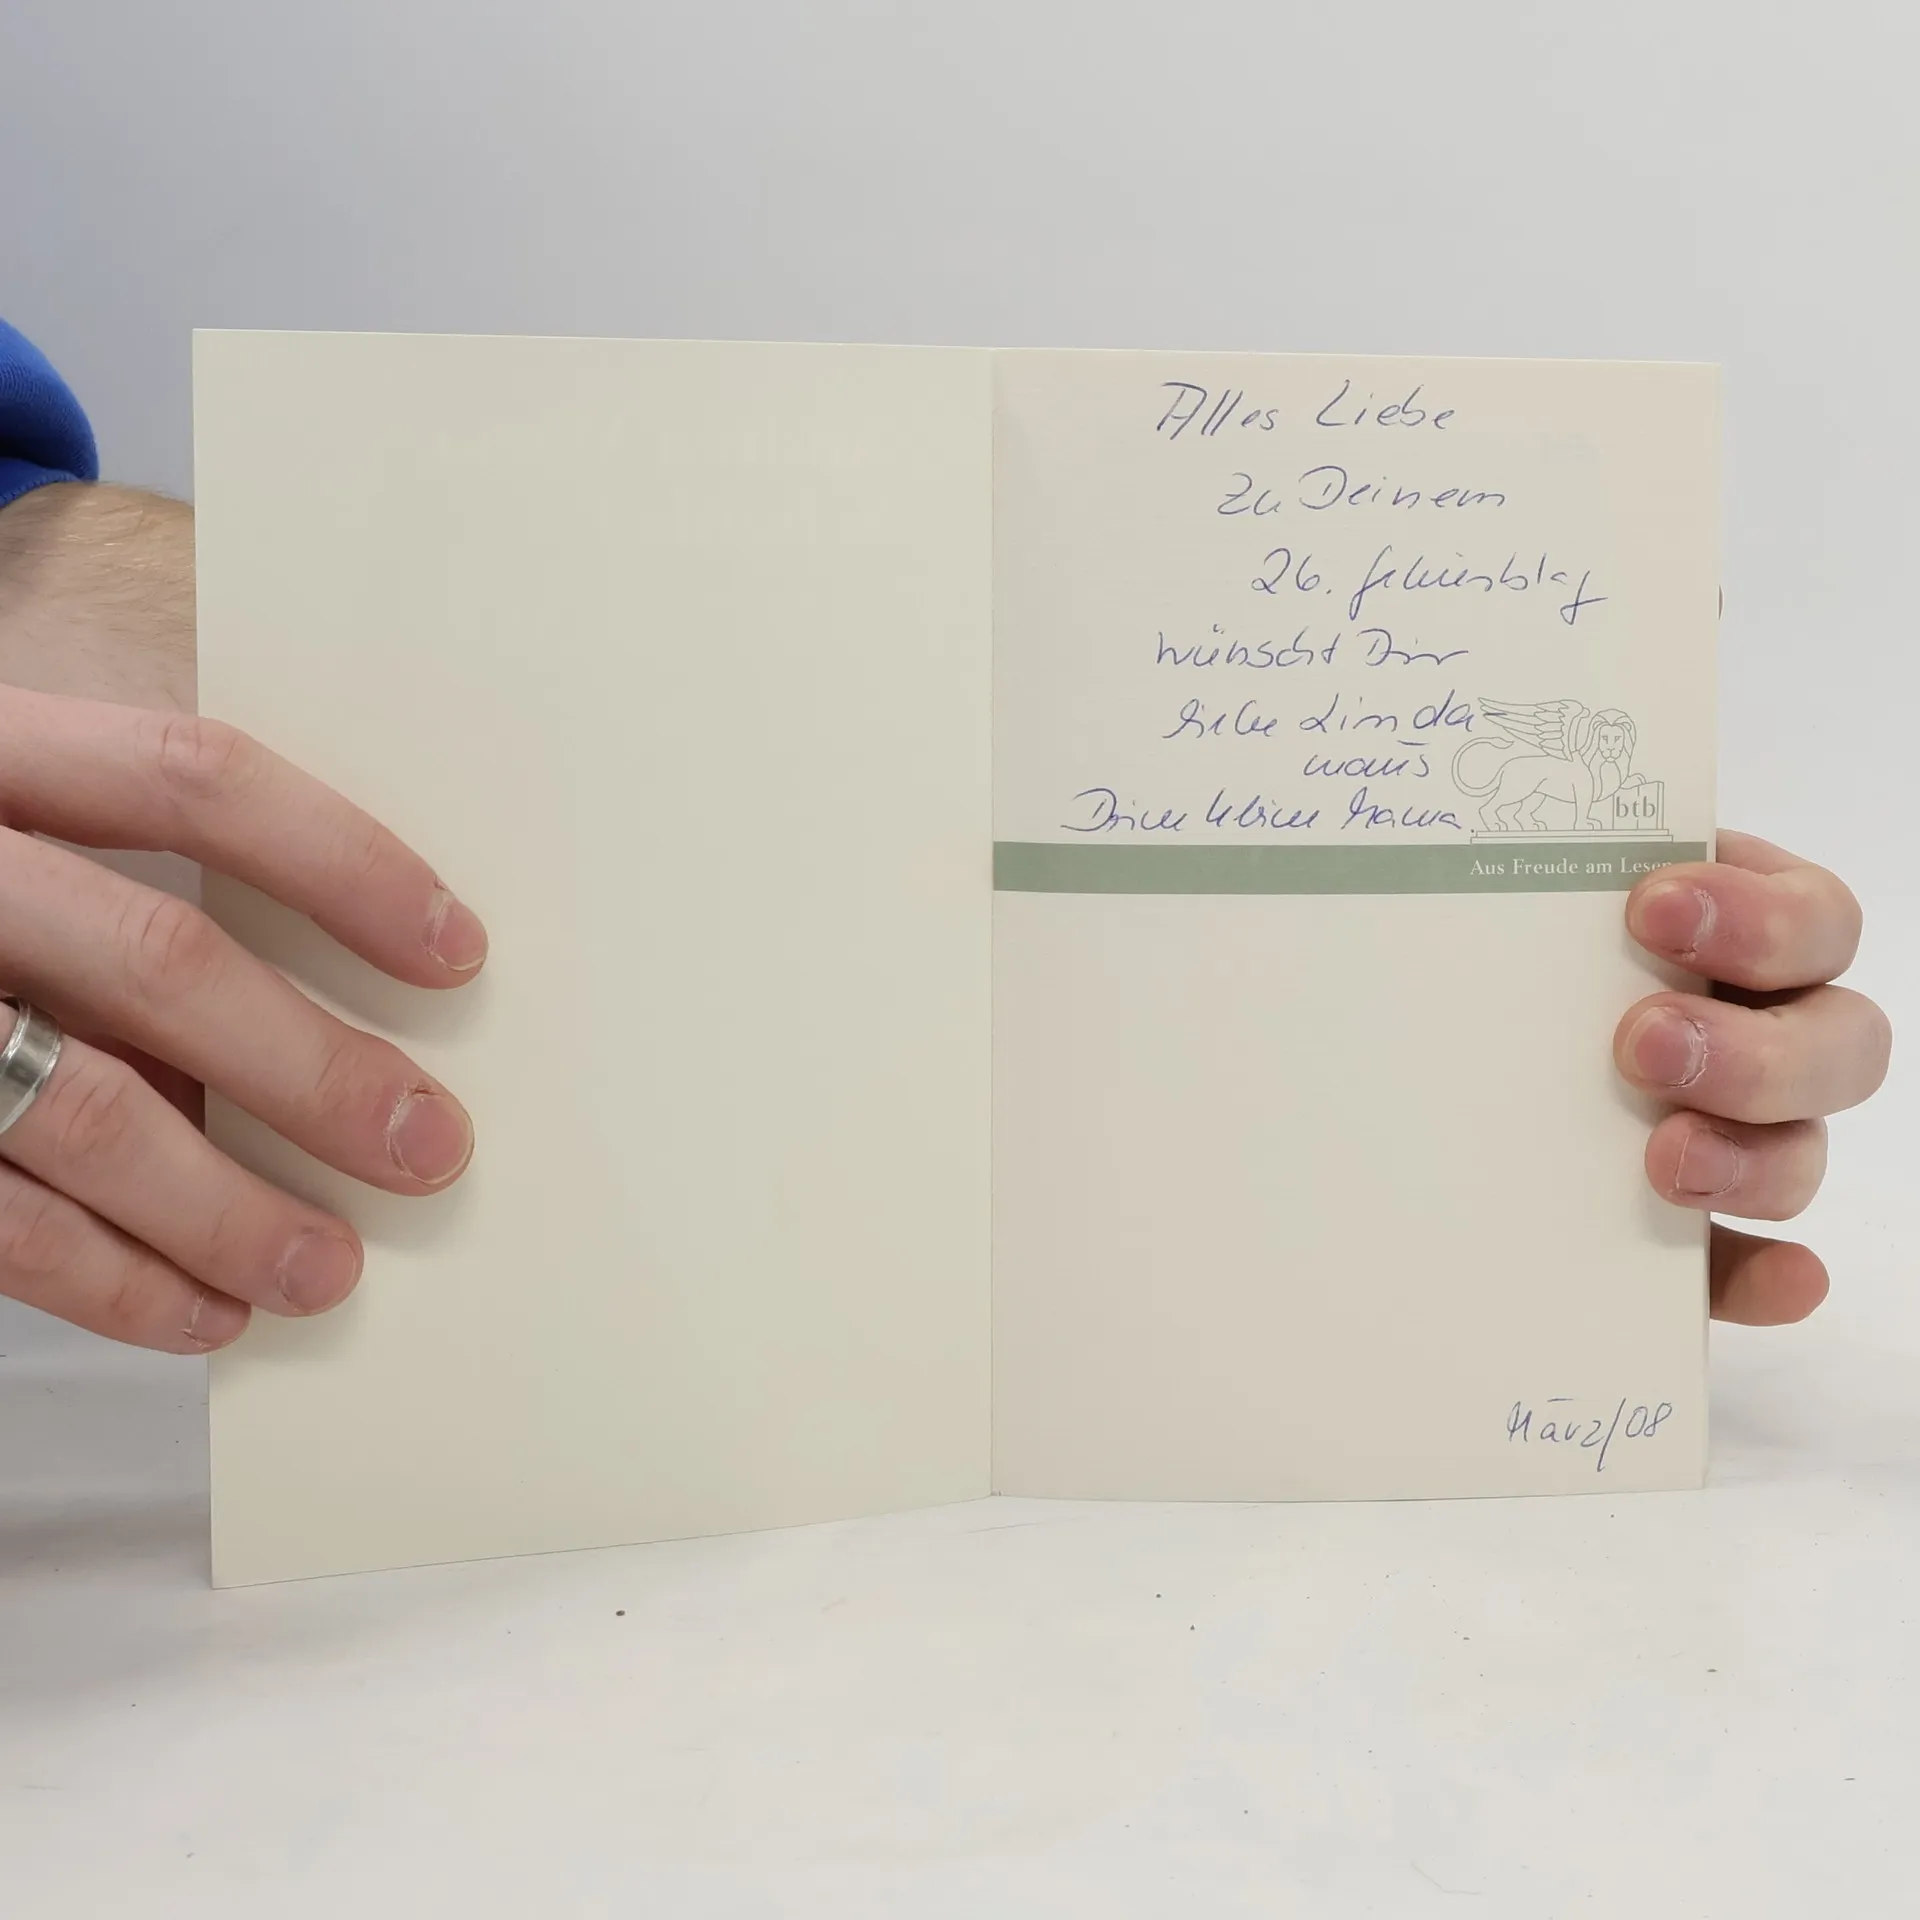 Alles Liebe
zu Deinem
26. Geburtstag
wünscht Dir
liebe Linda-
maus
Deine kleine Mama.
btb
Aus Freude am Lesen
März/08